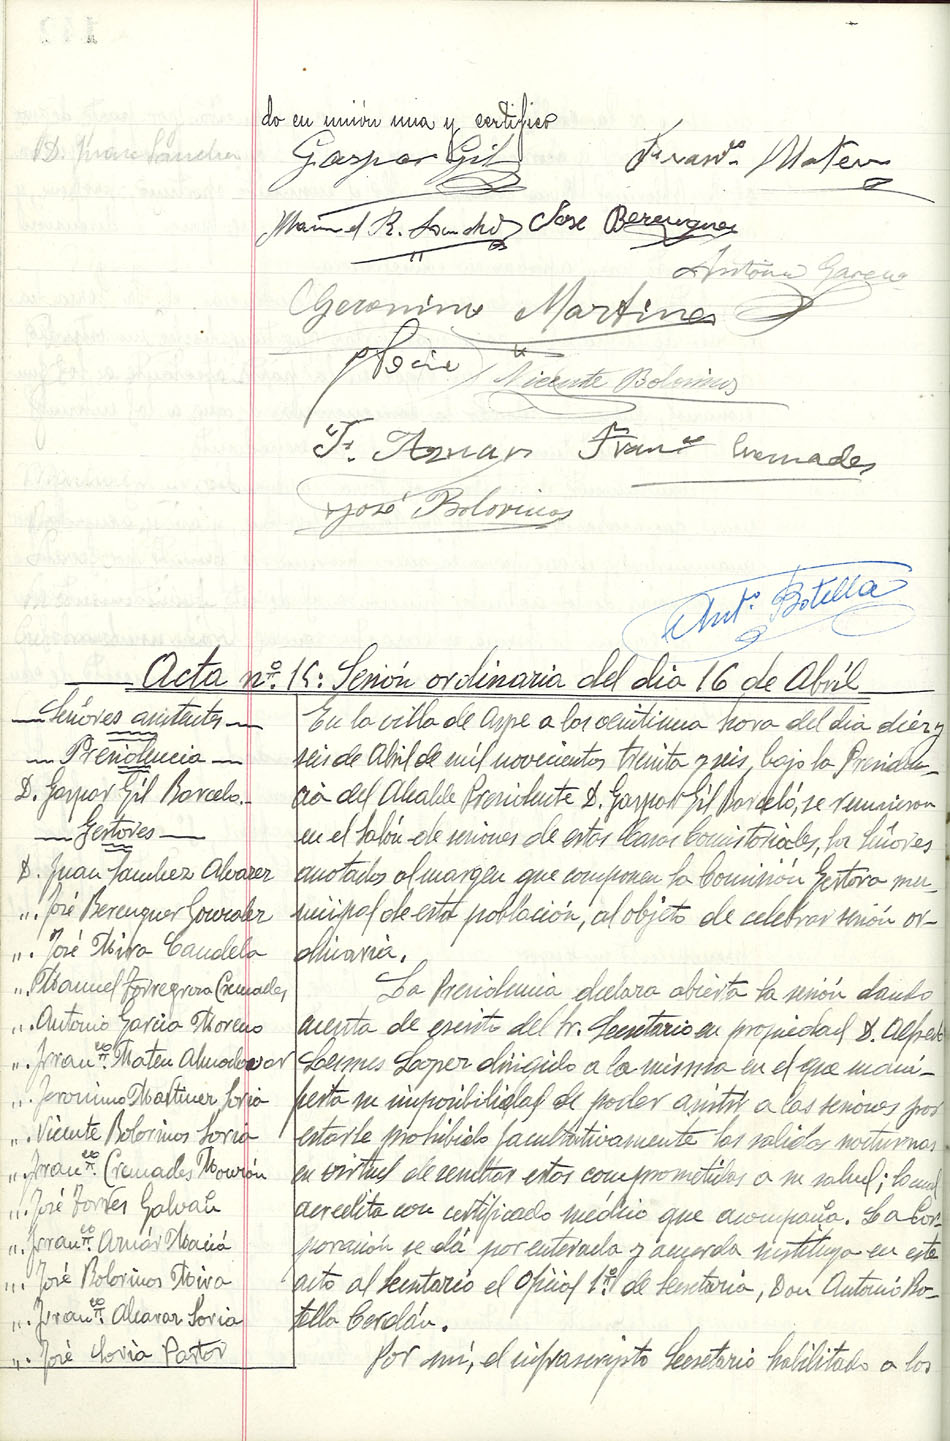 do en unión mia y certifico
Gaspar Gil
Franco Mateu
Manuel R. Sanchez
José Berenguer
Antonio Garcia
Geronimo Martinez
Vicente Bolorinos
F. Aznar
Franco Cremades
José Bolorinos
Anto. Botella
Acta no. 15: Sesión ordinaria del dia 16 de Abril
Señores asistentes
Presidencia
D. Gaspar Gil Barcelo.
Gestores
D. Juan Sanchez Alvarez
". José Berenguer Gonzalez
". José Mira Caudela
". Manuel Torregrosa Cremades
". Antonio Garcia Moreno
". Franco Mateu Almodovar
". Jeronimo Martinez Soria
". Vicente Bolorinos Soria
". Franco Cremades Mourón
". José Torres Galvañ
". Franco Aznár Maciá
". José Bolorinos Mira
". Franco Alcaraz Soria
". José Soria Pastor
En la villa de Aspe a las veintiuna hora del dia diéz y
seis de Abril de mil novecientos treinta y seis, bajo la Presiden-
cia del Alcalde Presidente D. Gaspar Gil Barceló, se reunieron
en el Salón de sesiones de estas Casas Consistoriales, los Señores
anotados al margen que componen la Comisión Gestora mu-
nicipal de esta población, al objeto de celebrar sesión or-
dinaria.
La Presidencia declara abierta la sesión dando
cuenta de escrito del Sr. Secretario en propiedad D. Alfredo
Lopez dirigido a la misma en el que mani-
fiesta su imposibilidad de poder asistir a las sesiones por
estarle prohibido facultativamente las salidas nocturnas
en virtud de resultar estas comprometidas a su salud; lo cual
acredita con certificado médico que acompaña. La Cor-
poración se dá por enterada y acuerda sustituya en este
acto al Secretario el Oficial 1o. de Secretaria, Don Antonio Bo-
tella Cerdán.
Por mi, el infrascripto Secretario habilitado a los